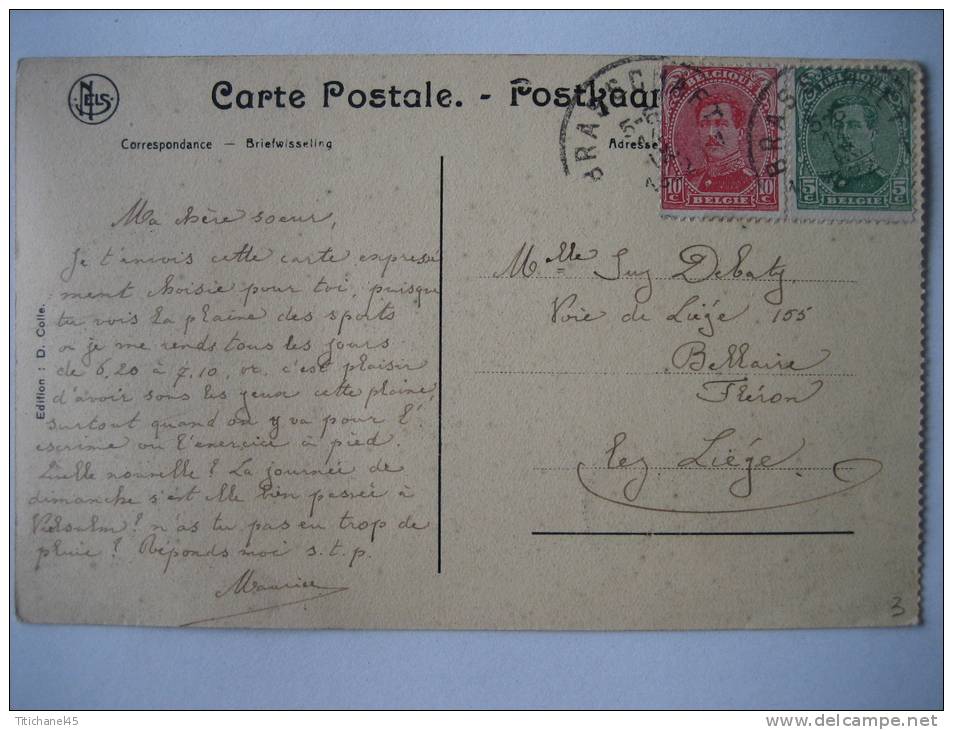 NELS
Carte Postale. - Postkaar
Correspondance — Briefwisseling
Adresse
BRASSCHAET
BRASSCHAET
BELGIQUE
10 c 10 c
BELGIE
BELGIQUE
5 c 5 c
BELGIE
Edition : D. Colle.
Ma chère soeur,
Je t'envois cette carte expressé
ment choisie pour toi, puisque
tu vois la plaine des sports
où je me rends tous les jours
de 6.20 à 7.10, c'est plaisir
d'avoir sous les yeux cette plaine,
surtout quand on y va pour l'
escrime ou l'exercice à pied.
Quelle nouvelle? La journée de
dimanche s'est elle bien passée à
Vielsalm? n'as tu pas eu trop de
pluie? Réponds moi s.t.p.
Maurice
Melle Suz Debaty
Voie de Liége 155
Bellaire
Fléron
lez Liége.
3
Ttichane45
www.delcampe.net